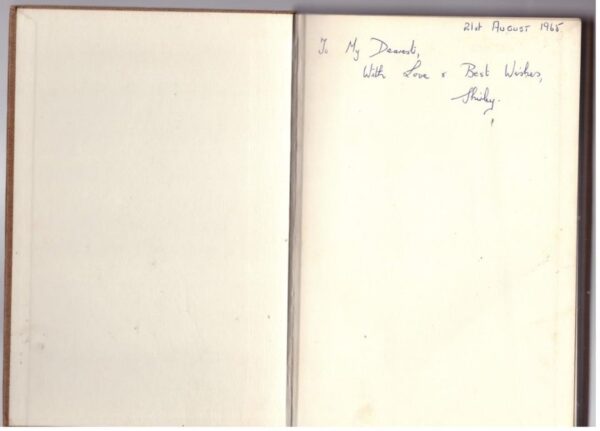 21st AUGUST 1965
To My Dearest,
With Love & Best Wishes,
Shirley.